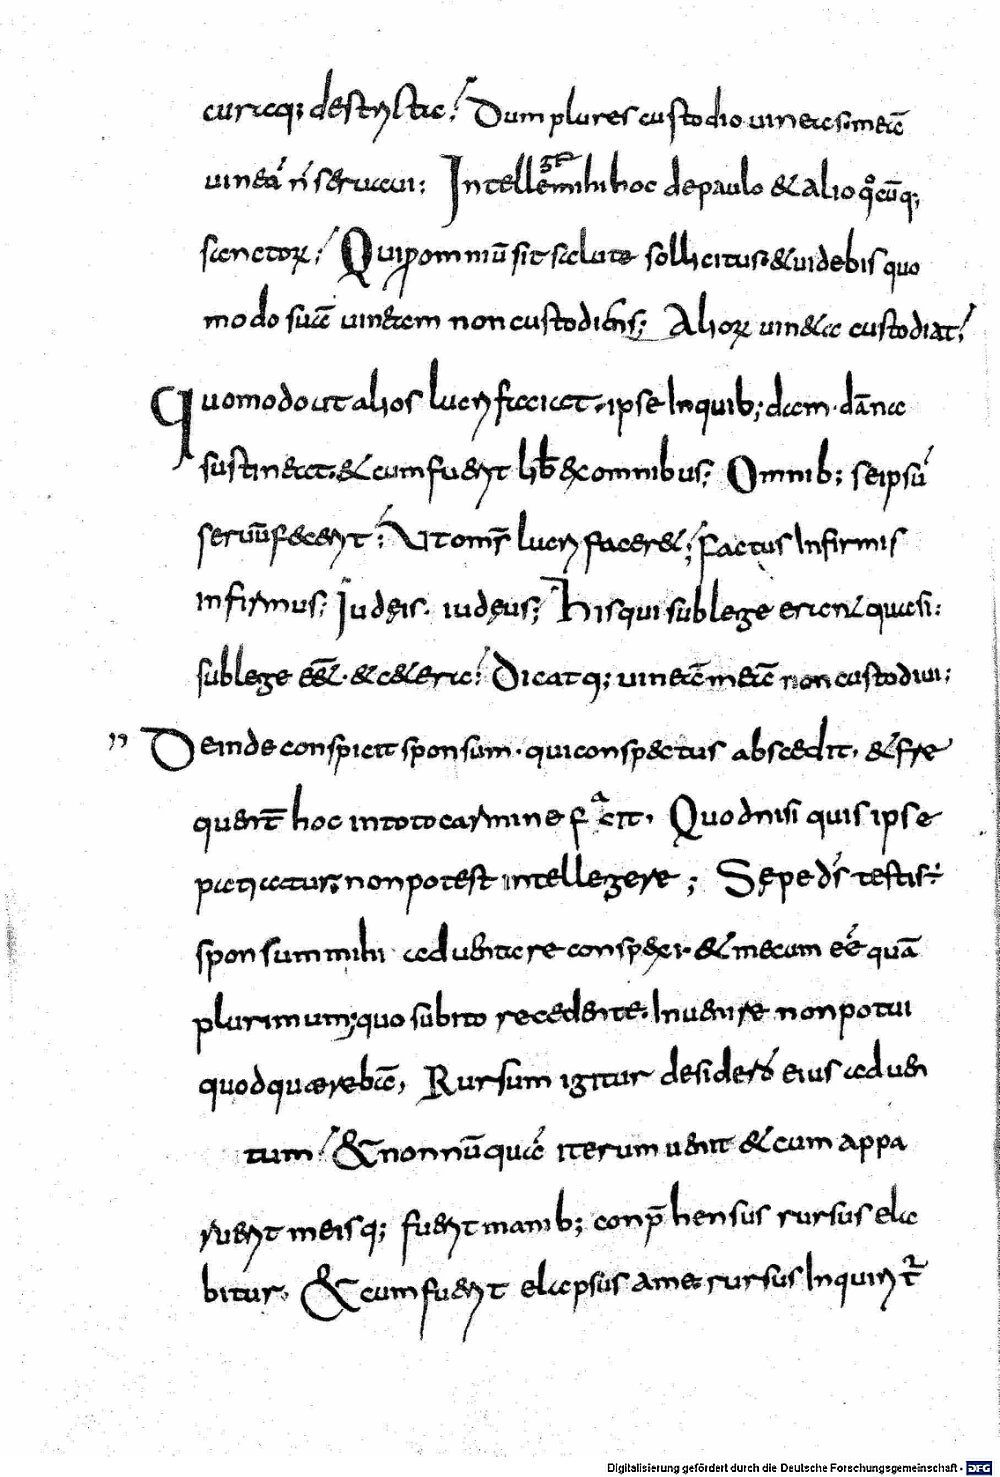 curaq; destricta; Dum plures custodio uineas. meā
uineā n̄ seruaui; Intellegemihi hoc de paulo & alio q̊cūq;
sanctorꝝ; Qui ꝓ omniū sit salute sollicitus. & uidebis quo
modo suā uineam non custodiens; Aliorꝝ uineas custodiat;
Quomodo ut alios lucri faciat. ipse Inquib; dam. dāna
sustineat. & cum fuerit lib̄ ex omnibus; Omnib; seipsū
seruū fecerit; Ut omīs lucri faceret; Factus Infirmis
infirmus; Iudęis. iudęus; His qui sub lege erant quasi
sub lege eēt. & cetera; Dicatq; uineā meā non custodiui;
Deinde conspicit sponsum. qui conspectus abscedit. & fre
quent̄ hoc in toto carmine facit. Quod nisi quis ipse
patiatur; non potest intellegere; Sępe d̄s testis;
sponsum mihi aduentare conspexi. & mecum eē quā
plurimum; quo subito recedente. Inuenire non potui
quod quærebā, Rursum igitur desiderō eius aduen
tum; & nonnūquā iterum uenit & cum appa
ruerit meisq; fuerit manib; conp̄hensus rursus ela
bitur. & cum fuerit elapsus a me. rursus Inquirit̄
Digitalisierung gefördert durch die Deutsche Forschungsgemeinschaft - DFG